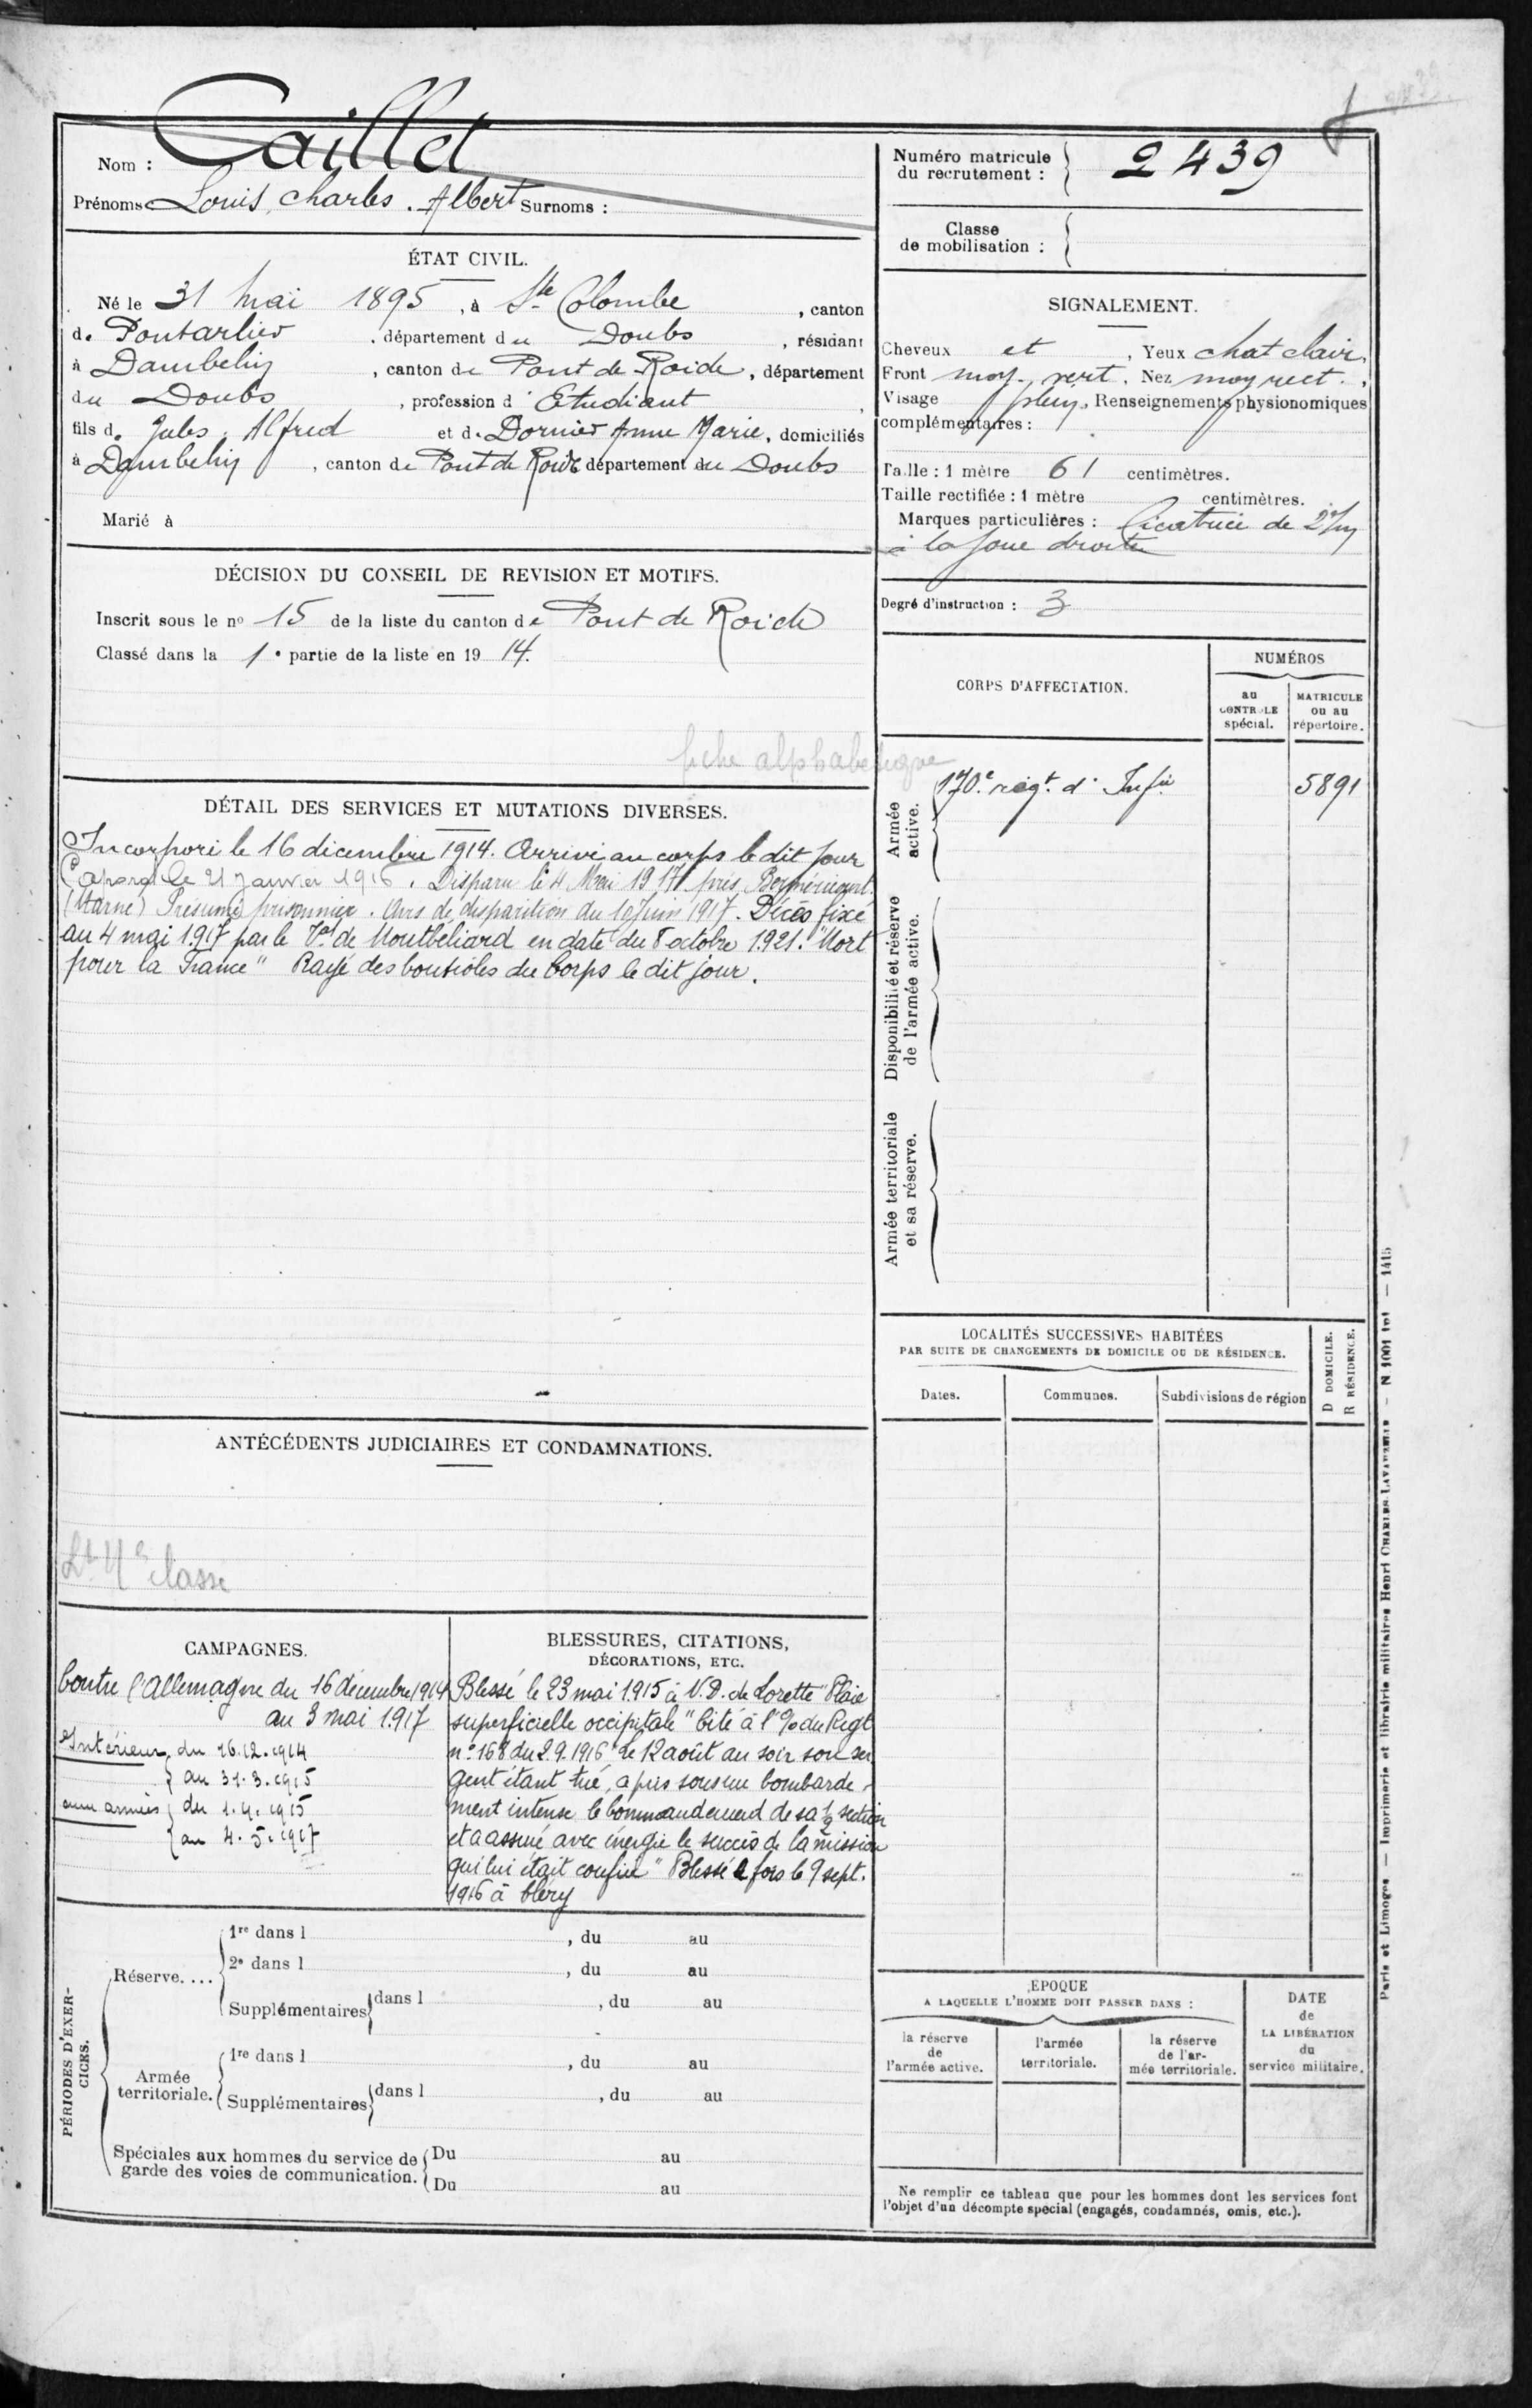 Nom : Caillet
Prénoms Louis, Charles. Albert Surnoms :
ÉTAT CIVIL.
Né le 31 Mai 1895, à Ste Colombe, canton
de Pontarlier, département du Doubs, résidant
à Dambelin, canton de Pont de Roide, département
du Doubs, profession d'Etudiant,
fils de Jules, Alfred et de Dornier Anne Marie, domiciliés
à Dambelin, canton de Pont de Roide département du Doubs
Marié à
DÉCISION DU CONSEIL DE REVISION ET MOTIFS.
Inscrit sous le no 15 de la liste du canton de Pont de Roide
Classé dans la 1e partie de la liste en 1914.
fiche alphabétique
DÉTAIL DES SERVICES ET MUTATIONS DIVERSES.
Incorporé le 16 décembre 1914. Arrivé au corps le dit jour
Caporal le 21 Janvier 1916. Disparu le 4 Mai 1917 près Berméricourt
(Marne) Présumé prisonnier. Avis de disparition du 10 Juin 1917. Décès fixé
au 4 mai 1917 par le Val de Montbéliard en date du 8 octobre 1921. "Mort
pour la France" Rayé des contrôles du Corps le dit jour.
ANTÉCÉDENTS JUDICIAIRES ET CONDAMNATIONS.
4e classe
CAMPAGNES.
Contre l'Allemagne du 16 décembre 1914
au 3 mai 1917
Intérieur du 16.12.1914
au 31.3.1915
aux armées du 1.4.1915
au 4.5.1917
BLESSURES, CITATIONS,
DÉCORATIONS, ETC.
Blessé le 23 mai 1915 à N.D. de Lorette "Plaie
superficielle occipitale" Cité à l'% du Regt
no 168 du 2.9.1916 "Le 12 août au soir son ser
gent étant tué, a pris sous un bombarde-
ment intense le commandement de sa ½ section
et a assuré avec énergie le succès de la mission
qui lui était confiée" Blessé 2 fois le 9 sept.
1916 à Cléry
PÉRIODES D'EXER-
CICES.
Réserve....
1re dans l , du au
2e dans l , du au
Supplémentaires dans l , du au
Armée
territoriale.
1re dans l , du au
Supplémentaires dans l , du au
Spéciales aux hommes du service de
garde des voies de communication.
Du au
Du au
Numéro matricule
du recrutement : 2439
Classe
de mobilisation :
SIGNALEMENT.
Cheveux et, Yeux chat clair,
Front moy. vert. Nez moy rect.,
Visage plein, Renseignements physionomiques
complémentaires :
Taille : 1 mètre 61 centimètres.
Taille rectifiée : 1 mètre centimètres.
Marques particulières : Cicatrice de
à la joue droite
Degré d'instruction : 3
CORPS D'AFFECTATION.
NUMÉROS
au
CONTROLE
spécial.
MATRICULE
ou au
répertoire.
Armée
active.
170e régt d'Infie 5891
Disponibilité et réserve
de l'armée active.
Armée territoriale
et sa réserve.
LOCALITÉS SUCCESSIVES HABITÉES
PAR SUITE DE CHANGEMENTS DE DOMICILE OU DE RÉSIDENCE.
Dates.
Communes.
Subdivisions de région
D DOMICILE.
R RÉSIDENCE.
ÉPOQUE
A LAQUELLE L'HOMME DOIT PASSER DANS :
la réserve
de
l'armée active.
l'armée
territoriale.
la réserve
de l'ar-
mée territoriale.
DATE
de
LA LIBÉRATION
du
service militaire.
Ne remplir ce tableau que pour les hommes dont les services font
l'objet d'un décompte spécial (engagés, condamnés, omis, etc.).
Paris et Limoges. — Imprimerie et librairie militaires Henri CHARLES-LAVAUZELLE